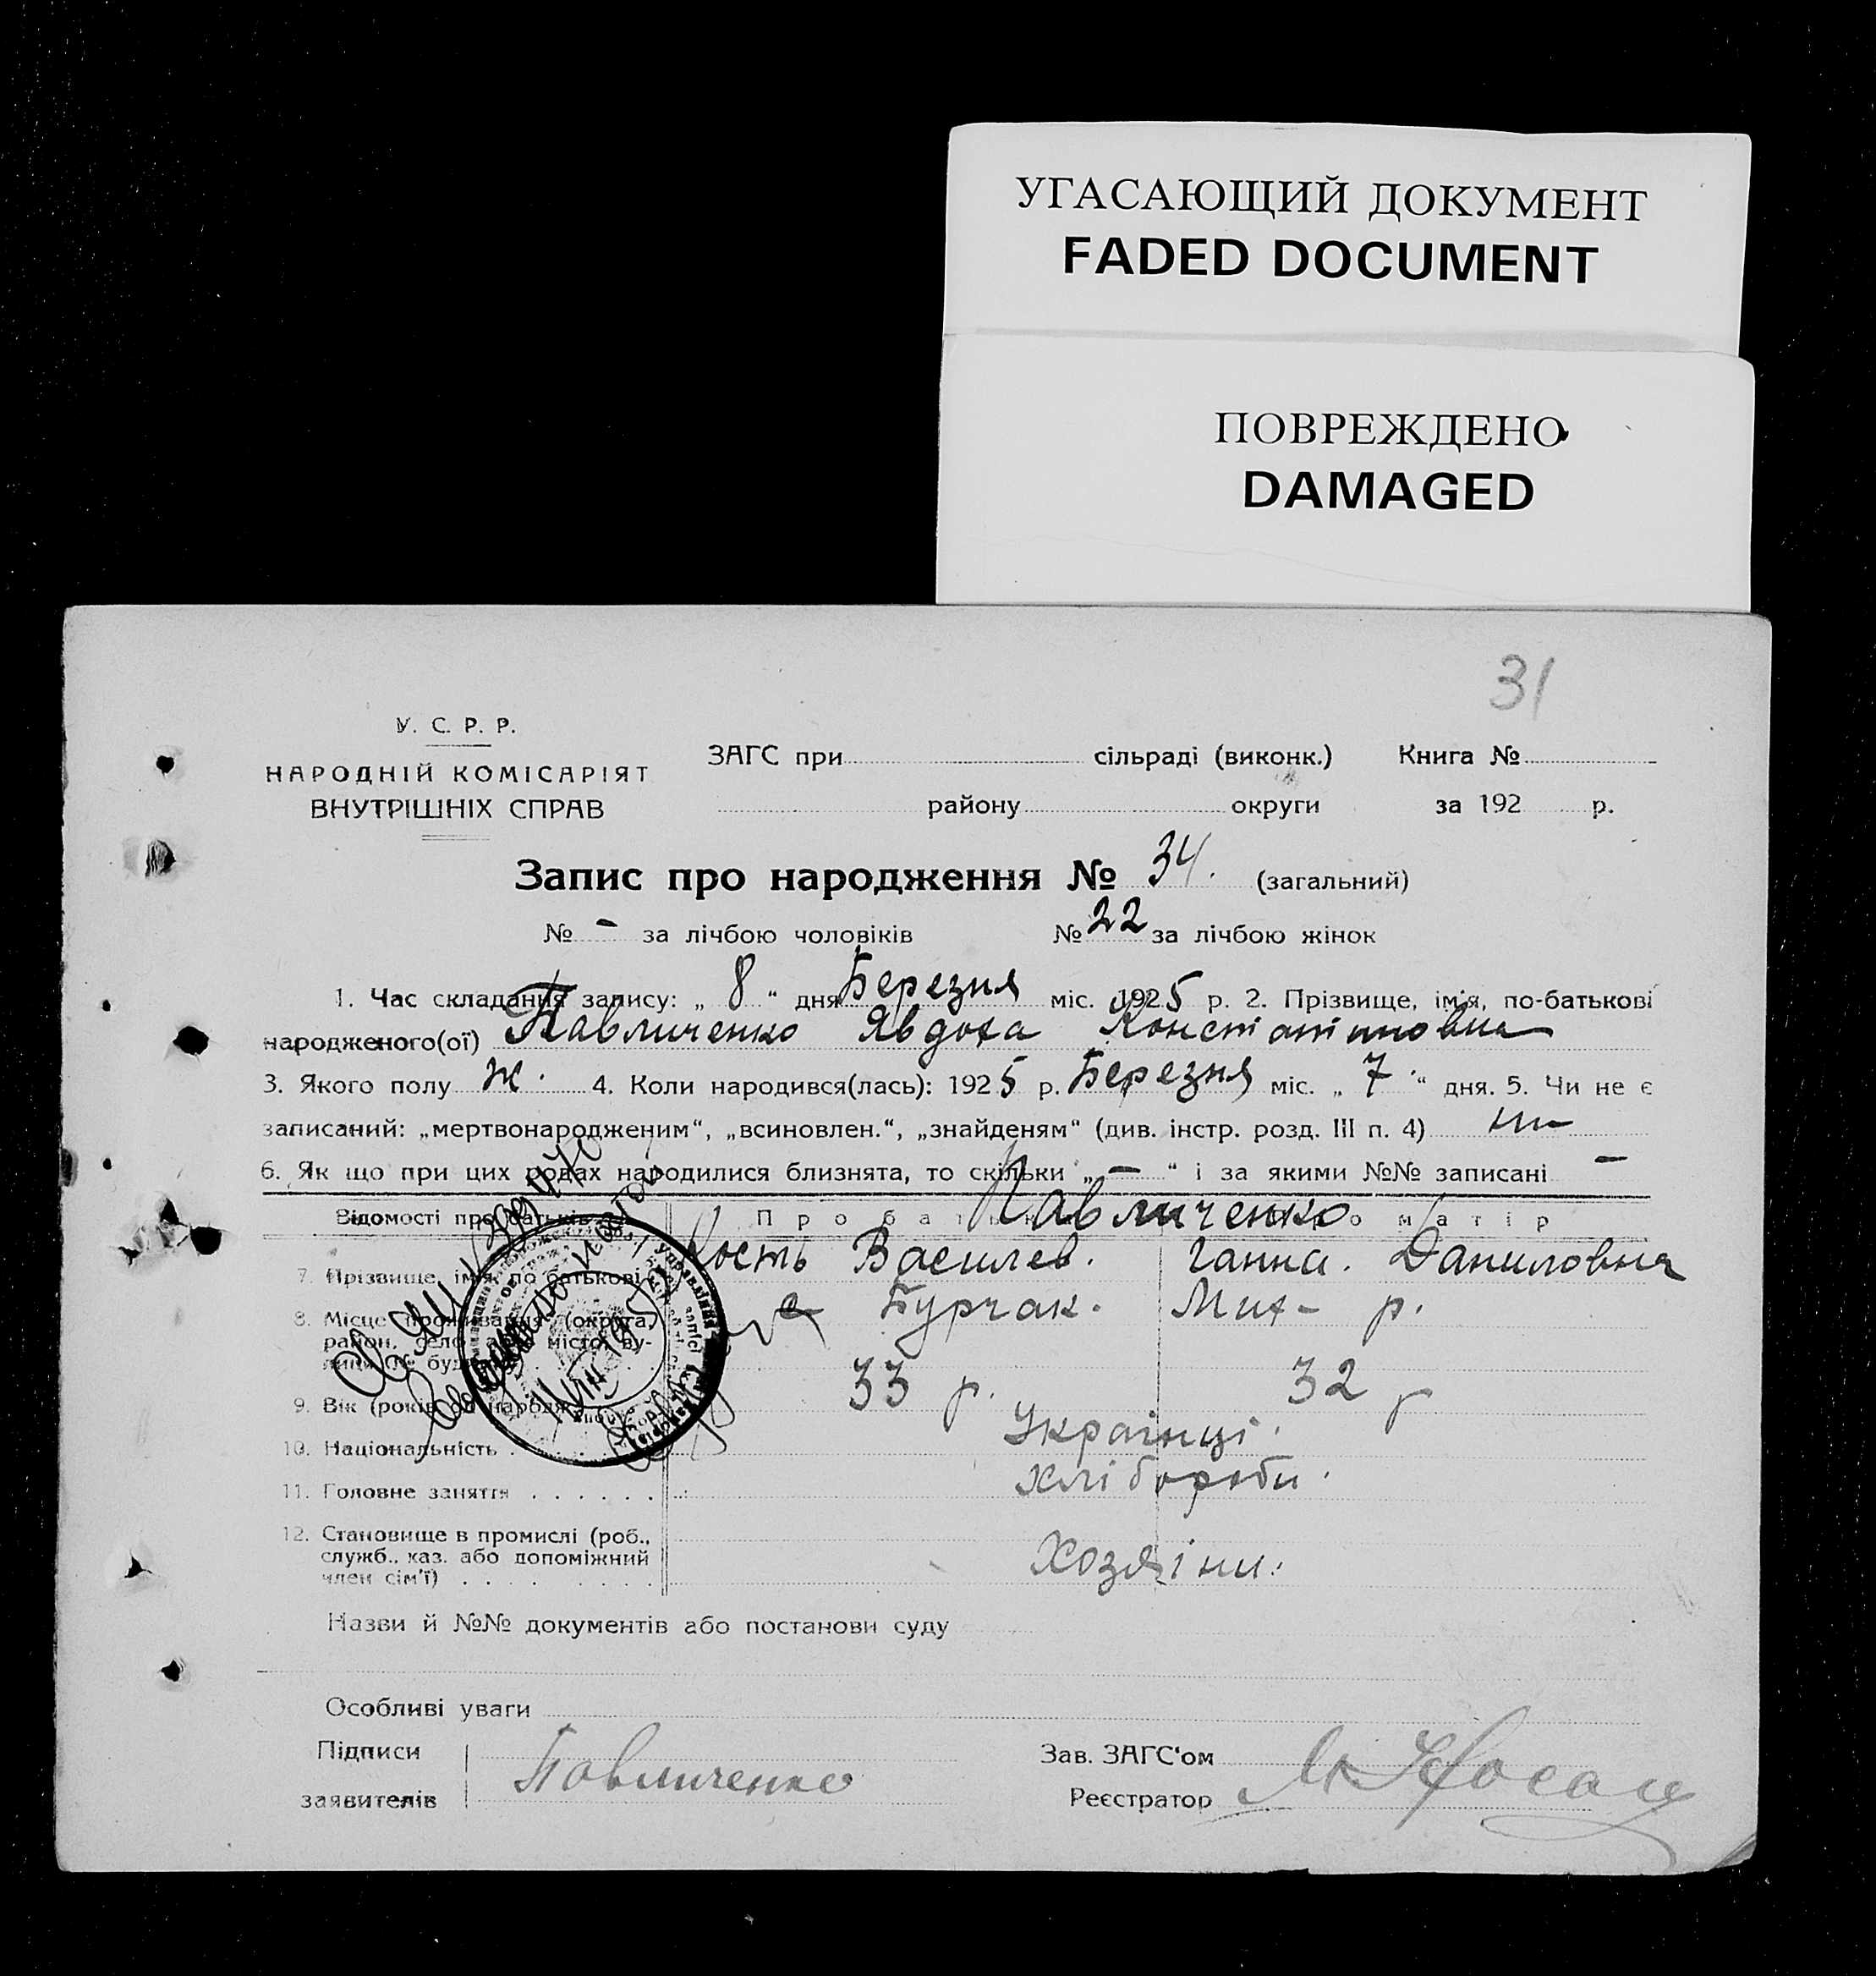 УГАСАЮЩИЙ ДОКУМЕНТ
FADED DOCUMENT
ПОВРЕЖДЕНО
DAMAGED
31
У. С. Р. Р.
НАРОДНІЙ КОМІСАРІЯТ
ВНУТРІШНІХ СПРАВ
ЗАГС при сільраді (виконк.) Книга №
району округи за 192 р.
Запис про народження № 34. (загальний)
№ - за лічбою чоловіків № 22 за лічбою жінок
1. Час складання запису: „ 8 “ дня Березня міс. 1925 р. 2. Прізвище, ім'я, по-батькові
народженого(ої) Павличенко Явдоха Констатиновна
3. Якого полу ж. 4. Коли народився(лась): 1925 р. Березня міс. „ 7 “ дня. 5. Чи не є
записаний: „мертвонародженим“, „всиновлен.“, „знайденям“ (див. інстр. розд. III п. 4) ни
6. Як що при цих родах народилися близнята, то скільки „ — “ і за якими №№ записані —
Відомості про батьків Про батька Про матір
Павличенко
7. Прізвище, ім'я, по батькові Кость Василев. Ганна. Даниловна
8. Місце проживання (округа, район, село або місто, ву-
Бурчак. Мих- р.
9. Вік (років 33 р. 32 р
10. Національність Українці.
11. Головне заняття хлібороби.
12. Становище в промислі (роб.,
служб., хаз. або допоміжний
член сім'ї) Хозяіни.
Назви й №№ документів або постанови суду
Особливі уваги
Підписи
заявителів Павличенко
Зав. ЗАГС'ом
Реєстратор